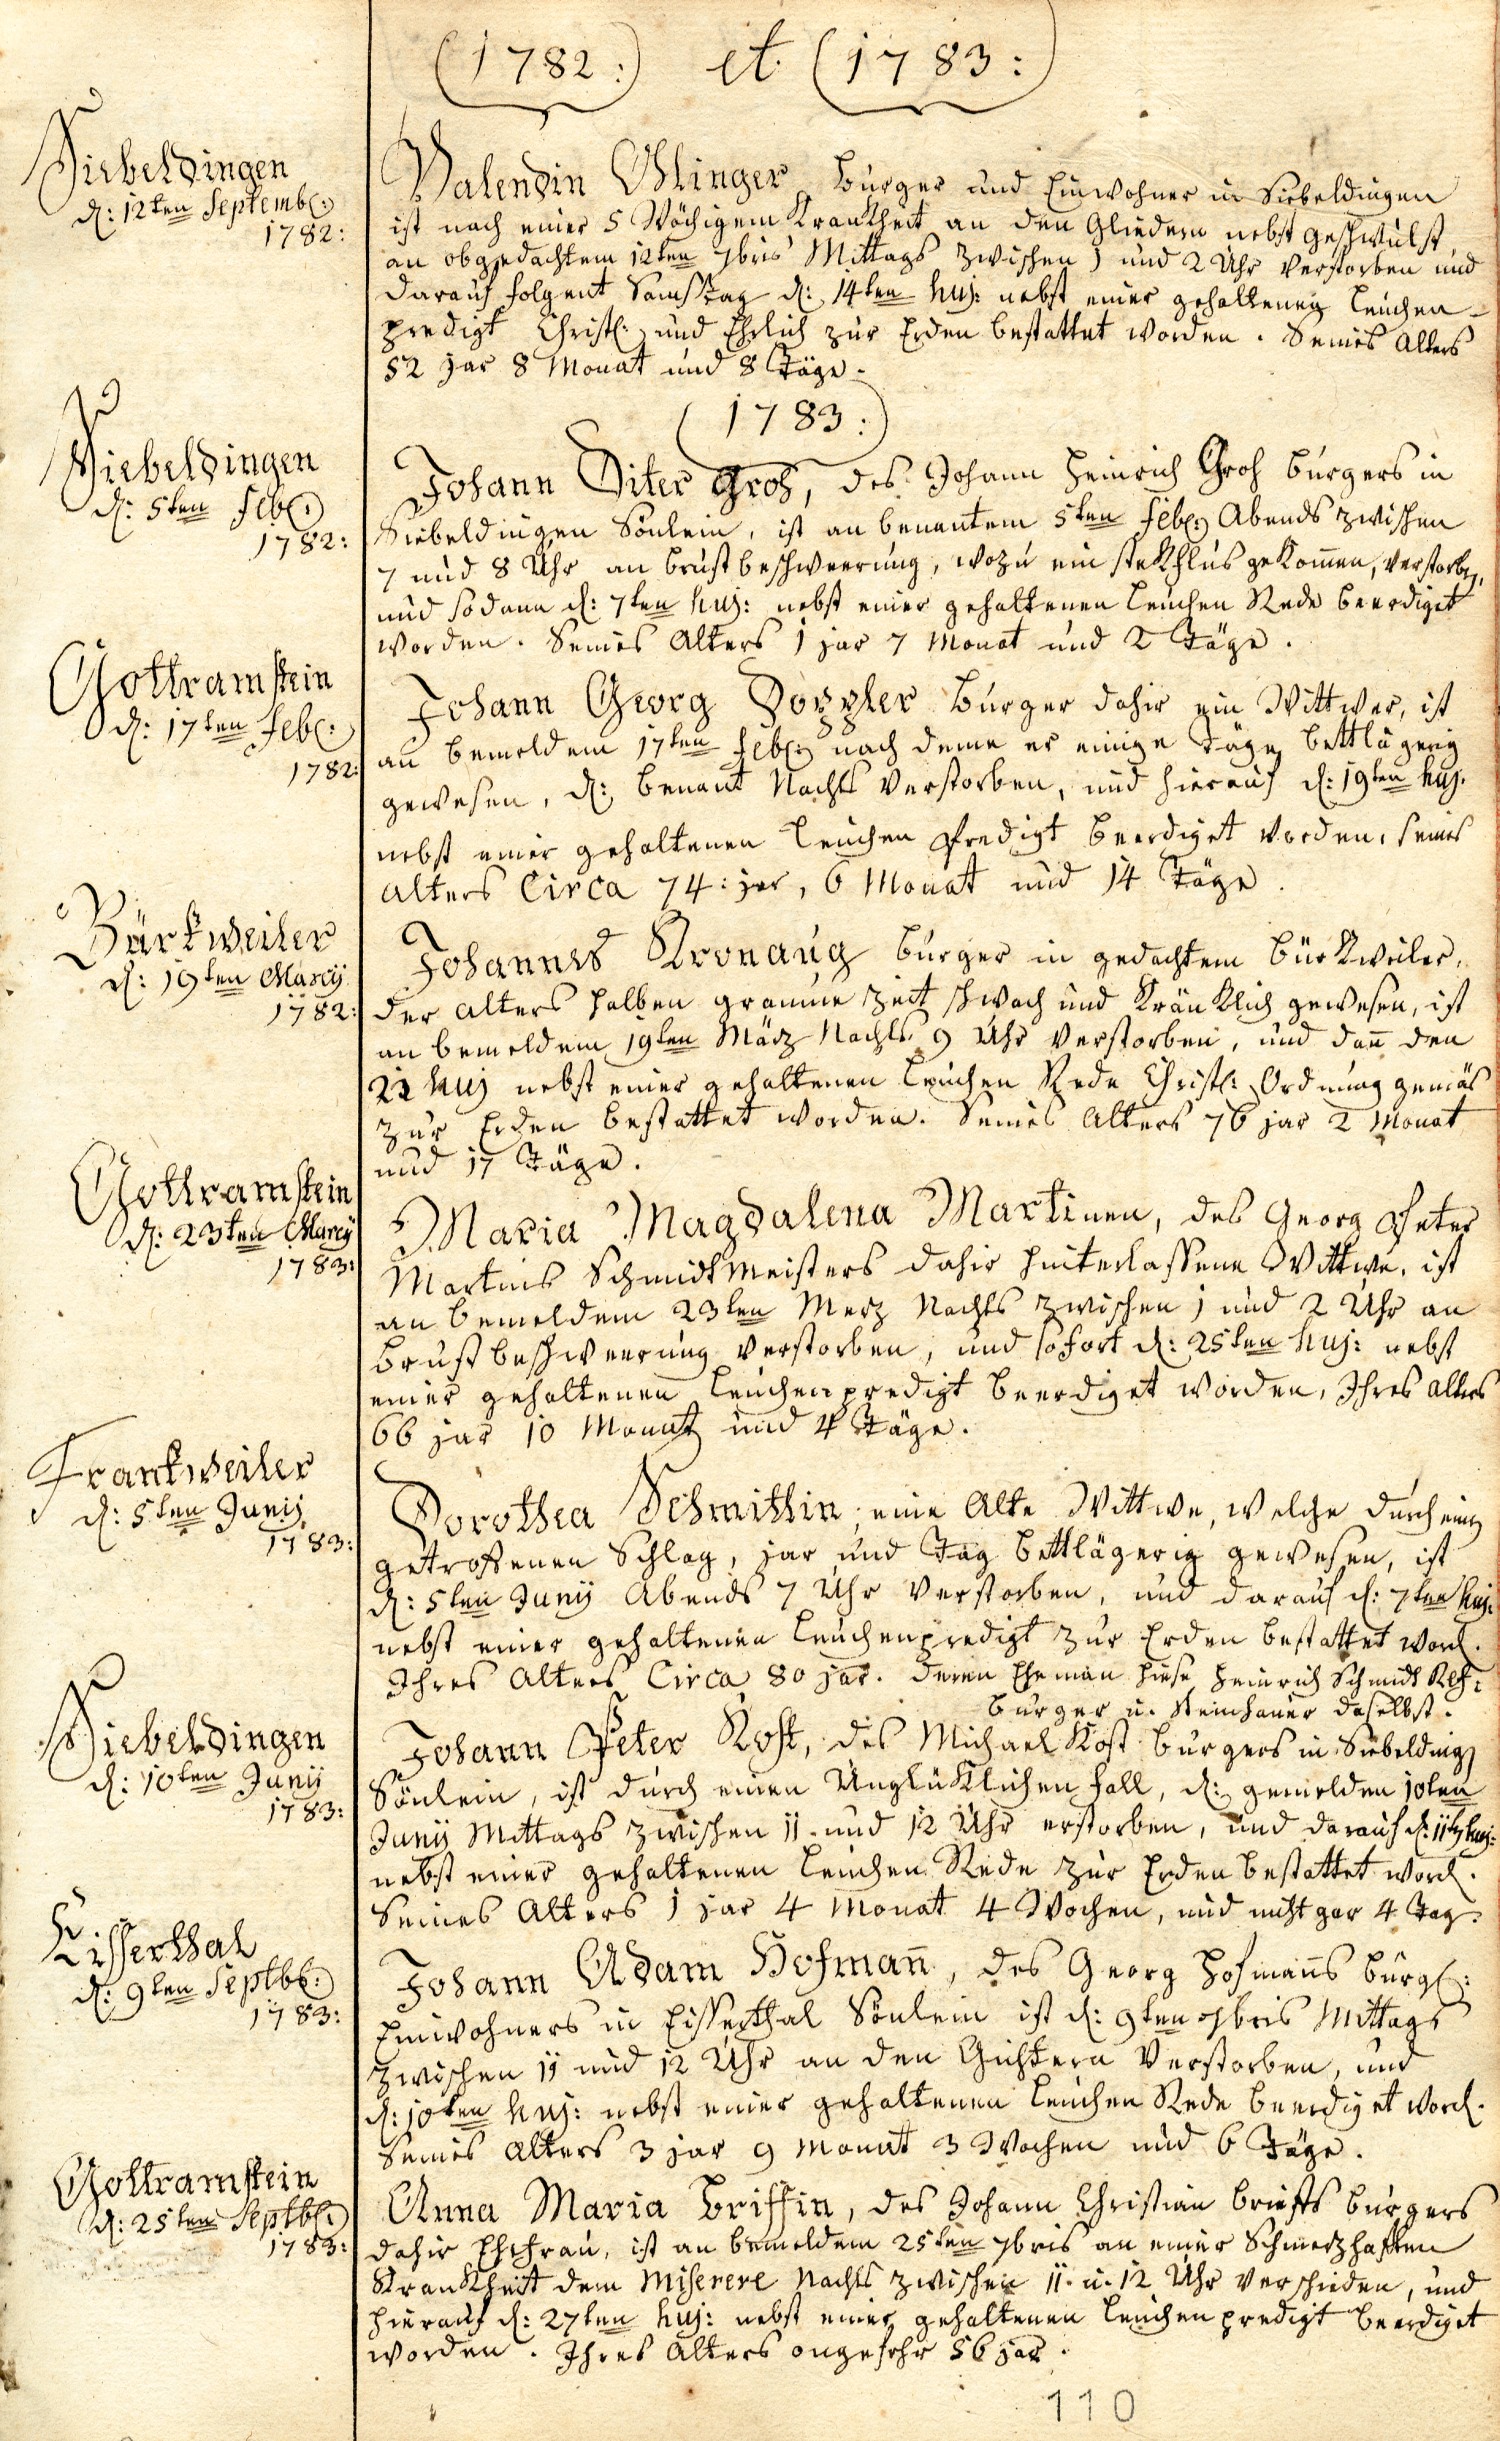 (1782:) et (1783:)
Siebeldingen
d: 12ten Septemb:
1782:
Valendin Öslinger Burger und Einwohner in Siebeldingen
ist nach einer 5 Wöchigem Krankheit an den Gliedern nebst geschwulst
an obgedachtem 12ten 7bris Mittags zwischen 1 und 2 Uhr verstorben und
darauf folgent Samstag d: 14ten huj: nebst einer gehaltenen Leuchen-
predigt Christl: und Ehrlich zur Erden bestattet worden. Seines Alters
52 jar 8 Monat und 8 Täge.
(1783:)
Siebeldingen
d: 5ten Feb:
1782:
Johann Diter Groh, des Johann Heinrich Groh burgers in
Siebeldingen Sönlein, ist an benantem 5ten Feb: Abends zwischen
7 und 8 Uhr an brustbeschweerung, wozu ein stekflus gekommen, verstorben,
und sodann d: 7ten huj: nebst einer gehaltenen Leuchen Rede beerdiget
worden. Seines Alters 1 jar 7 Monat und 2 Täge.
Gottramstein
d: 17ten Feb:
1782:
Johann Georg Doppler Burger dahir ein Wittwer, ist
an bemeldem 17ten Feb: nach deme er einige Täge bettlägerig
gewesen, d: benant Nachts verstorben, und hierauf d: 19ten huj.
nebst einer gehaltenen Leuchen Predigt beerdiget worden, seines
alters Circa 74: jar, 6 Monat und 14 Täge.
Bürkweiler
d: 19ten Marcy
1782:
Johannes Kronaug burger in gedachtem bürkweiler,
der alters halben graume zeit schwach und kränklich gewesen, ist
an bemeldem 19ten März Nachts 9 Uhr verstorben, und dann den
22 huj nebst einer gehaltenen Leuchen Rede Christl: Ordnung gemäs
zur Erden bestattet worden. Seines Alters 76 jar 2 Monat
und 17 Täge.
Gottramstein
d: 23ten Marcy
1783:
Maria Magdalena Martinen, des Georg Peter
Martins Schmidtmeisters dahir hinterlassene Wittwe, ist
an bemeldem 23ten Merz Nachts zwischen 1 und 2 Uhr an
brustbeschweerung verstorben, und sofort d: 25ten huj: nebst
einer gehaltenen Leuchenpredigt beerdiget worden, Ihres alters
66 jar 10 Monat und 4 Täge.
Frankweiler
d: 5ten Junij
1783:
Dorothea Schmithin, eine Alte Wittwe, welche durch einen
getroffenen Schlag, jar und Tag bettlägerig gewesen, ist
d: 5ten Junij Abends 7 Uhr verstorben, und darauf d: 7ten huj:
nebst einer gehaltenen Leuchenpredigt zur Erden bestattet word.
Ihres Alters Circa 80 jar. deren Eheman hiese Heinrich Schmidt
burger u. Steinhauer daselbst.
Siebeldingen
d: 10ten Junij
1783:
Johann Peter Kost, des Michael Kost burgers in Siebelding
Sönlein, ist durch einen Unglüklichen fall, d: gemelden 10ten
Junij Mittags zwischen 11 und 12 Uhr erstorben, und darauf d: 11ten huj:
nebst einer gehaltenen Leuchen Rede zur Erden bestattet word.
Seines Alters 1 jar 4 Monat 4 Wochen, und nicht gar 4 Tag.
Eisserthal
d: 9ten Septbl:
1783:
Johann Adam Hofmann, des Georg Hofmanns bürgl:
Einwohners in Eisserthal Sönlein ist d: 9ten 7bris Mittags
zwischen 11 und 12 Uhr an den Gichtern verstorben, und
d: 10ten huj: nebst einer gehaltenen Leuchen Rede beerdiget word.
Seines Alters 3 jar 9 Monat 3 Wochen und 6 Täge.
Gottramstein
d: 25ten Septbl:
1783:
Anna Maria Briffin, des Johann Christian brieffs burgers
dahir Ehefrau, ist an bemeldem 25ten 7bris an einer Schmerzhafften
Krankheit dem Miserere Nachts zwischen 11. u. 12 Uhr verschieden, und
hierauf d: 27ten huj: nebst einer gehaltenen Leuchenpredigt beerdiget
worden. Ihres Alters ongefehr 56 jar.
110